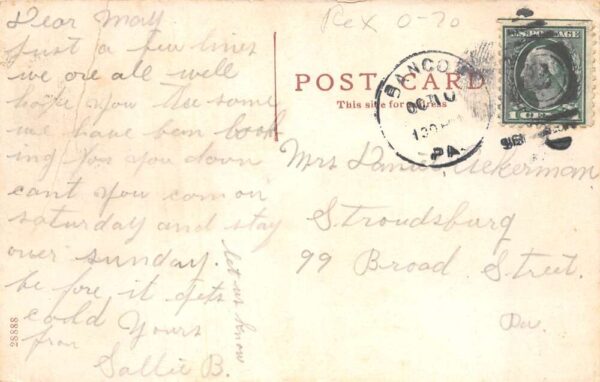 Dear May
Just a few lines
we are all well
hope you the same
we have been look
ing for you down
cant you com on
saturday and stay
over sunday.
be fore it gets
cold Yours
from
Sallie B.
let us know
28888
Rex 0-20
POST CARD
This side for address
U.S. POSTAGE
BANGO
OC
130 P
PA.
Mrs Daniel Ackerman
Stroudsburg
99 Broad Street.
Pa.